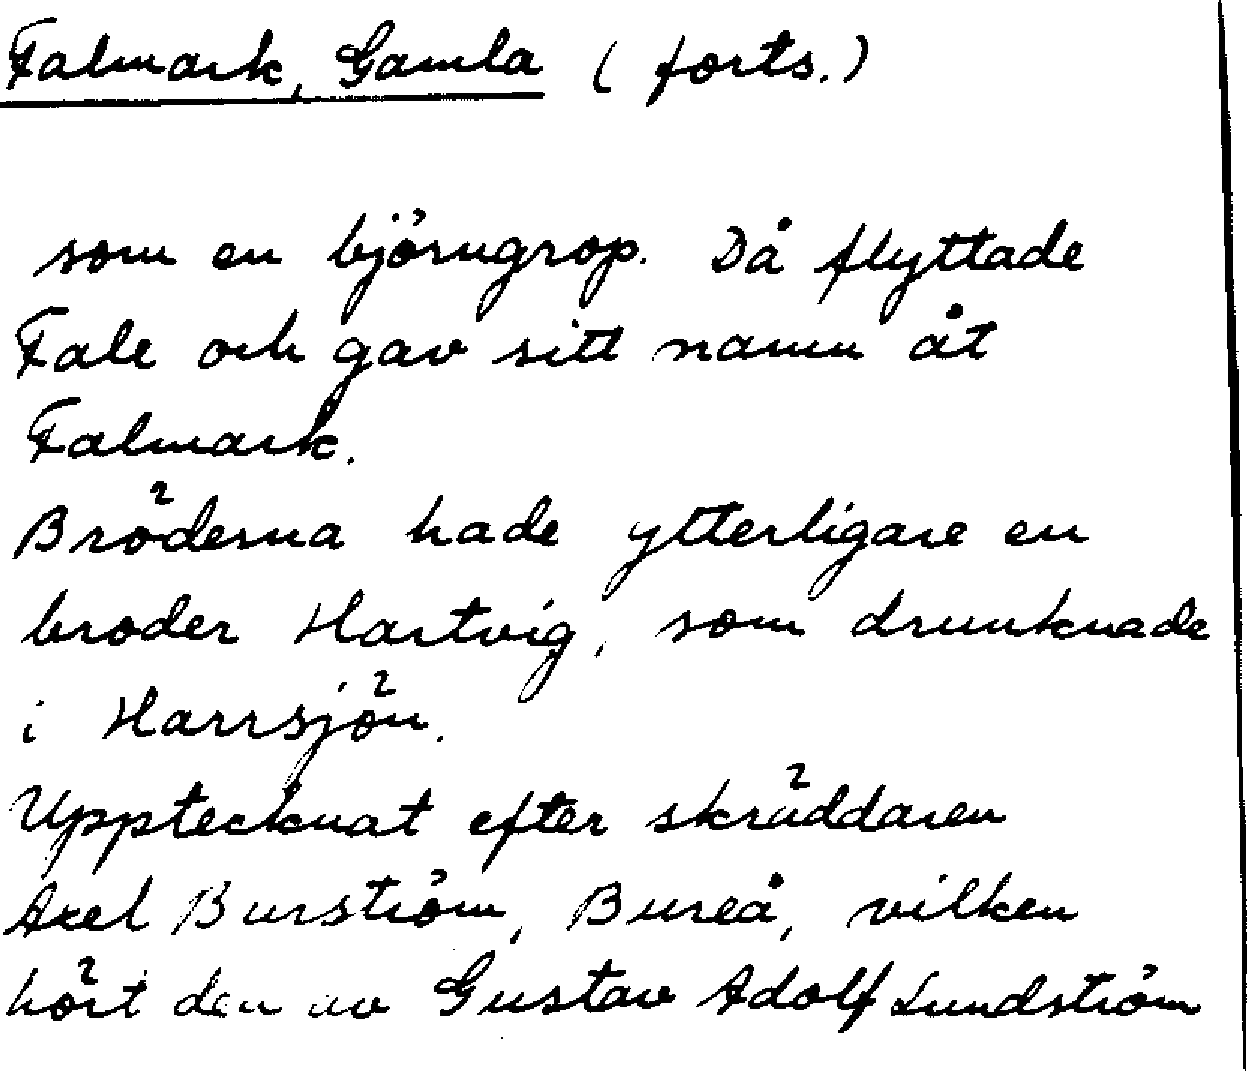 Falmark, Gamla (forts.)
som en björngrop. Då flyttade
Fale och gav sitt namn åt
Falmark.
Bröderna hade ytterligare en
broder Hartvig, som drunknade
i Harrsjön.
Upptecknat efter skräddaren
Axel Burström, Bureå, vilken
hört den av Gustav Adolf Lundström